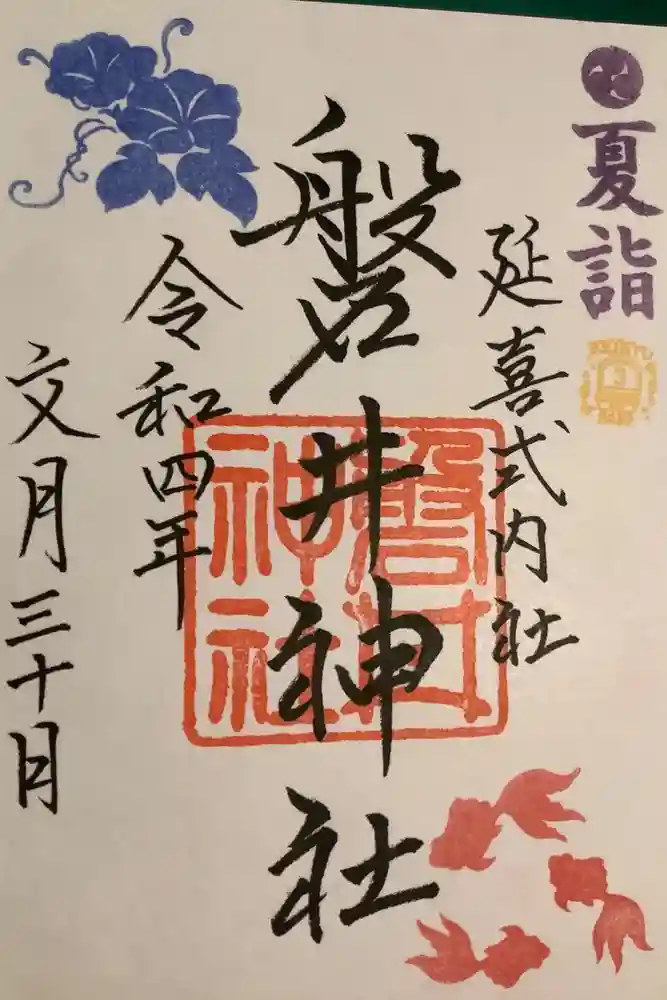 夏詣
延喜式内社
磐井神社
磐井神社
令和四年
文月三十日